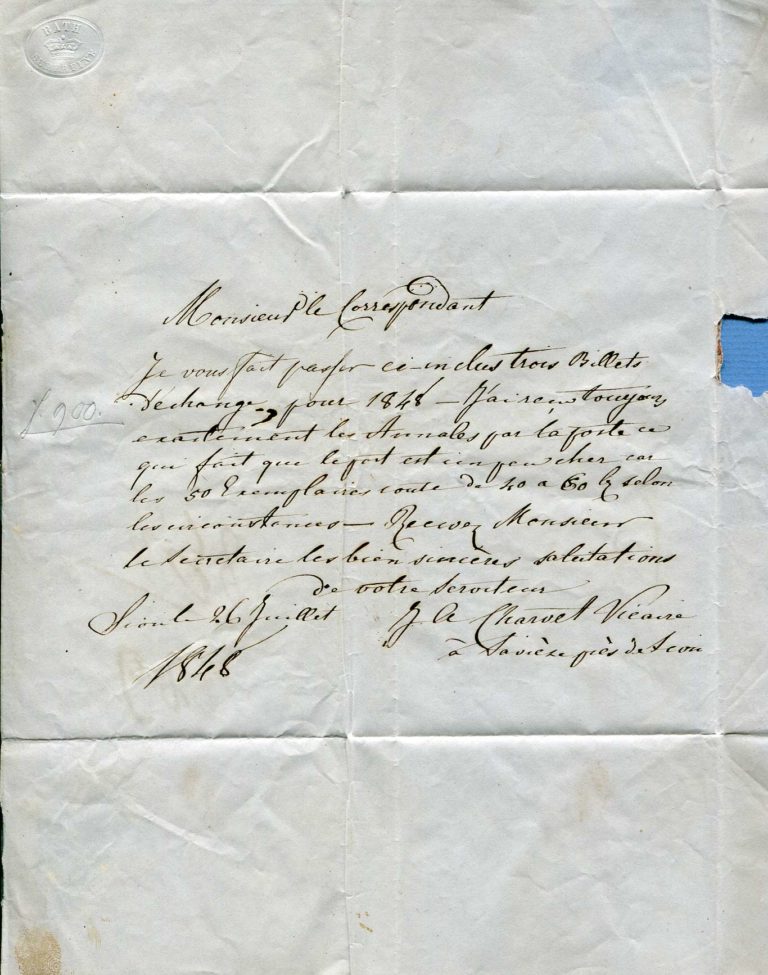 BATH
Monsieur le Correspondant
Je vous fait passer ci-inclus trois Billets
d'échange, pour 1848 — J'ai reçu toujours
exactement les Annales par la poste ce
qui fait que le port est un peu cher car
les 50 Exemplaires coute de 40 a 60 selon
les circonstances — Recevez Monsieur
le Secretaire les bien sincères salutations
de votre Serviteur
Sion le 26 Juillet
1848
J A Charvet Vicaire
à Savièse près de Sion
900.